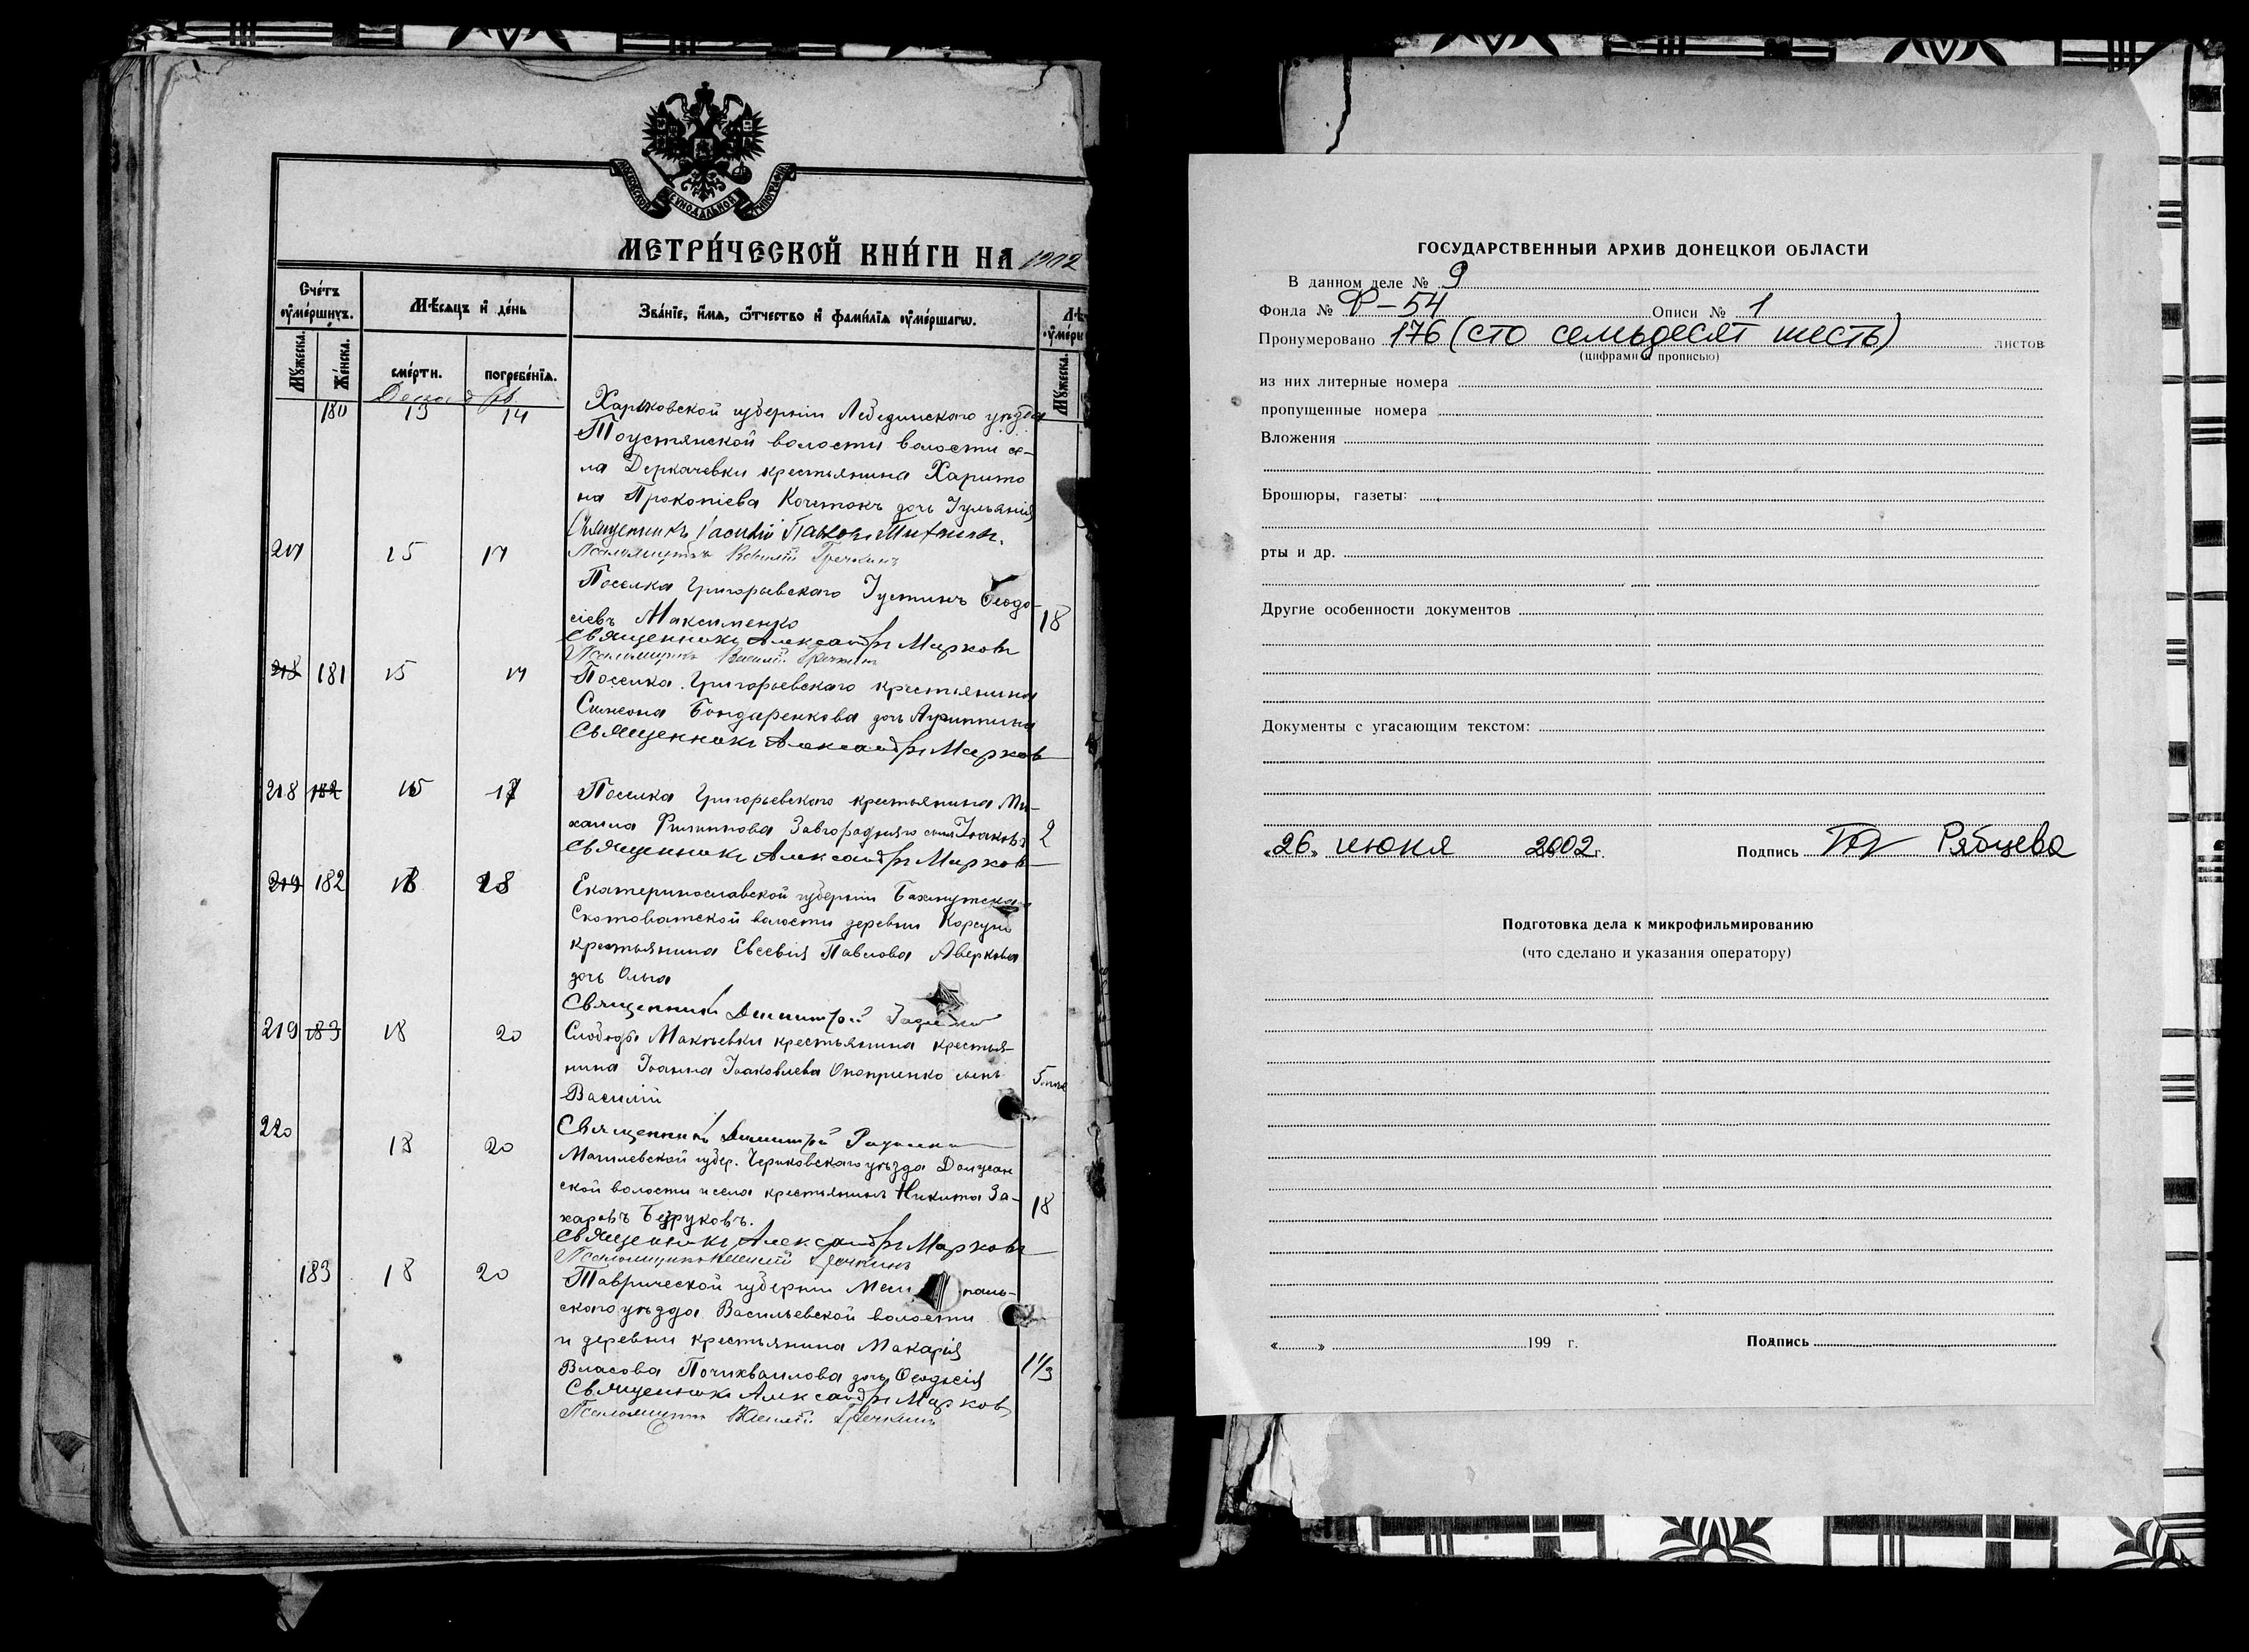 МОСКОВСКОЙ СѴНОДАЛЬНОЙ ТИПОГРАФІИ
МЕТРИ́ЧЕСКОЙ КНИ́ГИ НА 1902
Сче́тъ ᲂу҆ме́ршихъ.
Мѣ́сяцъ и҆ де́нь
Зва́нїе, и҆́мя, ѻ҆́тчество и҆ фами́лїя ᲂу҆ме́ршагѡ.
Лѣ
ᲂу҆ме́рш
Мꙋ́жеска.
Же́нска.
сме́рти.
погребе́нїя.
Мꙋ́жеска.
180 13 14 Харьковской губерніи Лебединского уѣзда
волости волости се-
ла Деркачевки крестьянина Харито
на Прокопіева дочь Іульянія
Священникъ Василій
Псаломщикъ Василій Гречкинъ
217 15 17
Поселка Григорьевского Іустинъ Ѳеодо-
сіевъ Максименко 18
Священникъ Александръ Марковъ
Псаломщикъ Василій Гречкинъ
218 181 15 17 Поселка Григорьевского крестьянина
Симеона Бондаренкова дочь Агриппина
Священникъ Александръ Марковъ
218 182 16 17 Поселка Григорьевского крестьянина Ми-
хаила Филиппова Завгороднего сынъ Іаковъ 2
Священникъ Александръ Марковъ
219 182 18 Екатеринославской губерніи Бахмутска
Скотоватской волости деревни Корсуно
крестьянина Евсевія Павлова Аверкова
дочь Ольга
Священникъ Димитрій
219 183 18 20 Слободы Макѣевки крестьянина крестья-
нина Іоанна Іаковлева Оноприенко сынъ 5
Василій
220
Священникъ Димитрій
18 20 Могилевской губер. Чериковского уѣзда
ской волости и села крестьянинъ Никита За- 18
харовъ
Священникъ Александръ Марковъ
Псаломщикъ Василій Гречкинъ
183 18 20 Таврической губерніи Мели поль-
ского уѣзда Васильевской волости
и деревни крестьянина Макарія
Власова Почихваилова дочь Ѳеодосія 1 1/3
Священникъ Александръ Марковъ
Псаломщикъ Василій Гречкинъ
ГОСУДАРСТВЕННЫЙ АРХИВ ДОНЕЦКОЙ ОБЛАСТИ
В данном деле № 9
Фонда № Ф-54 Описи № 1
Пронумеровано 176 (сто семьдесят шесть) листов
(цифрами и прописью)
из них литерные номера
пропущенные номера
Вложения
Брошюры, газеты:
рты и др.
Другие особенности документов
Документы с угасающим текстом:
«26» июня 2002 г. Подпись Рябцева
Подготовка дела к микрофильмированию
(что сделано и указания оператору)
« » 199 г. Подпись